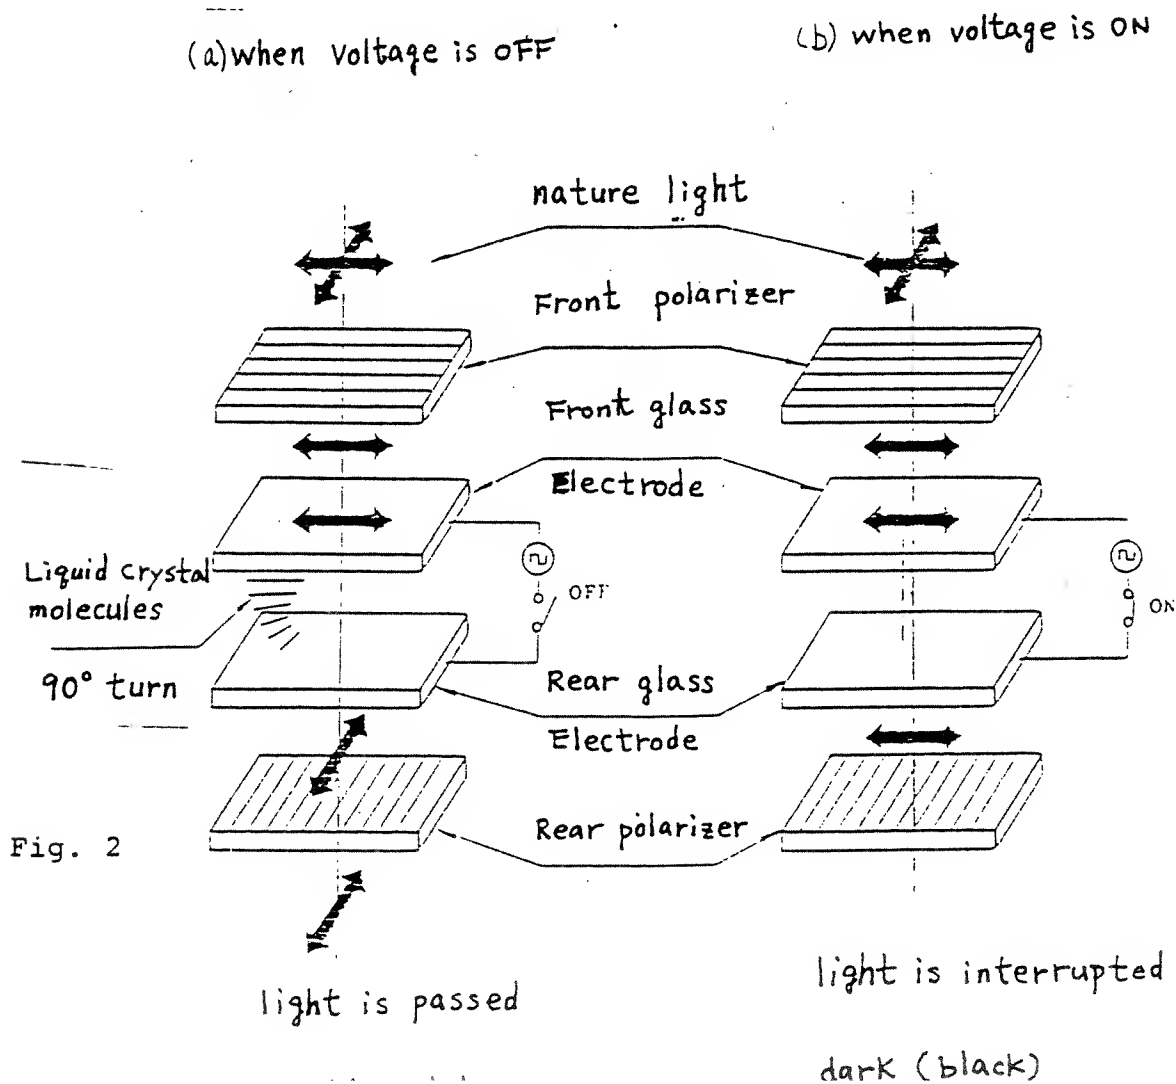 (a) when voltage is OFF
(b) when voltage is ON
nature light
Front polarizer
Front glass
Electrode
Liquid crystal
molecules
OFF
ON
90° turn
Rear glass
Electrode
Rear polarizer
Fig. 2
light is passed
light is interrupted
dark (black)